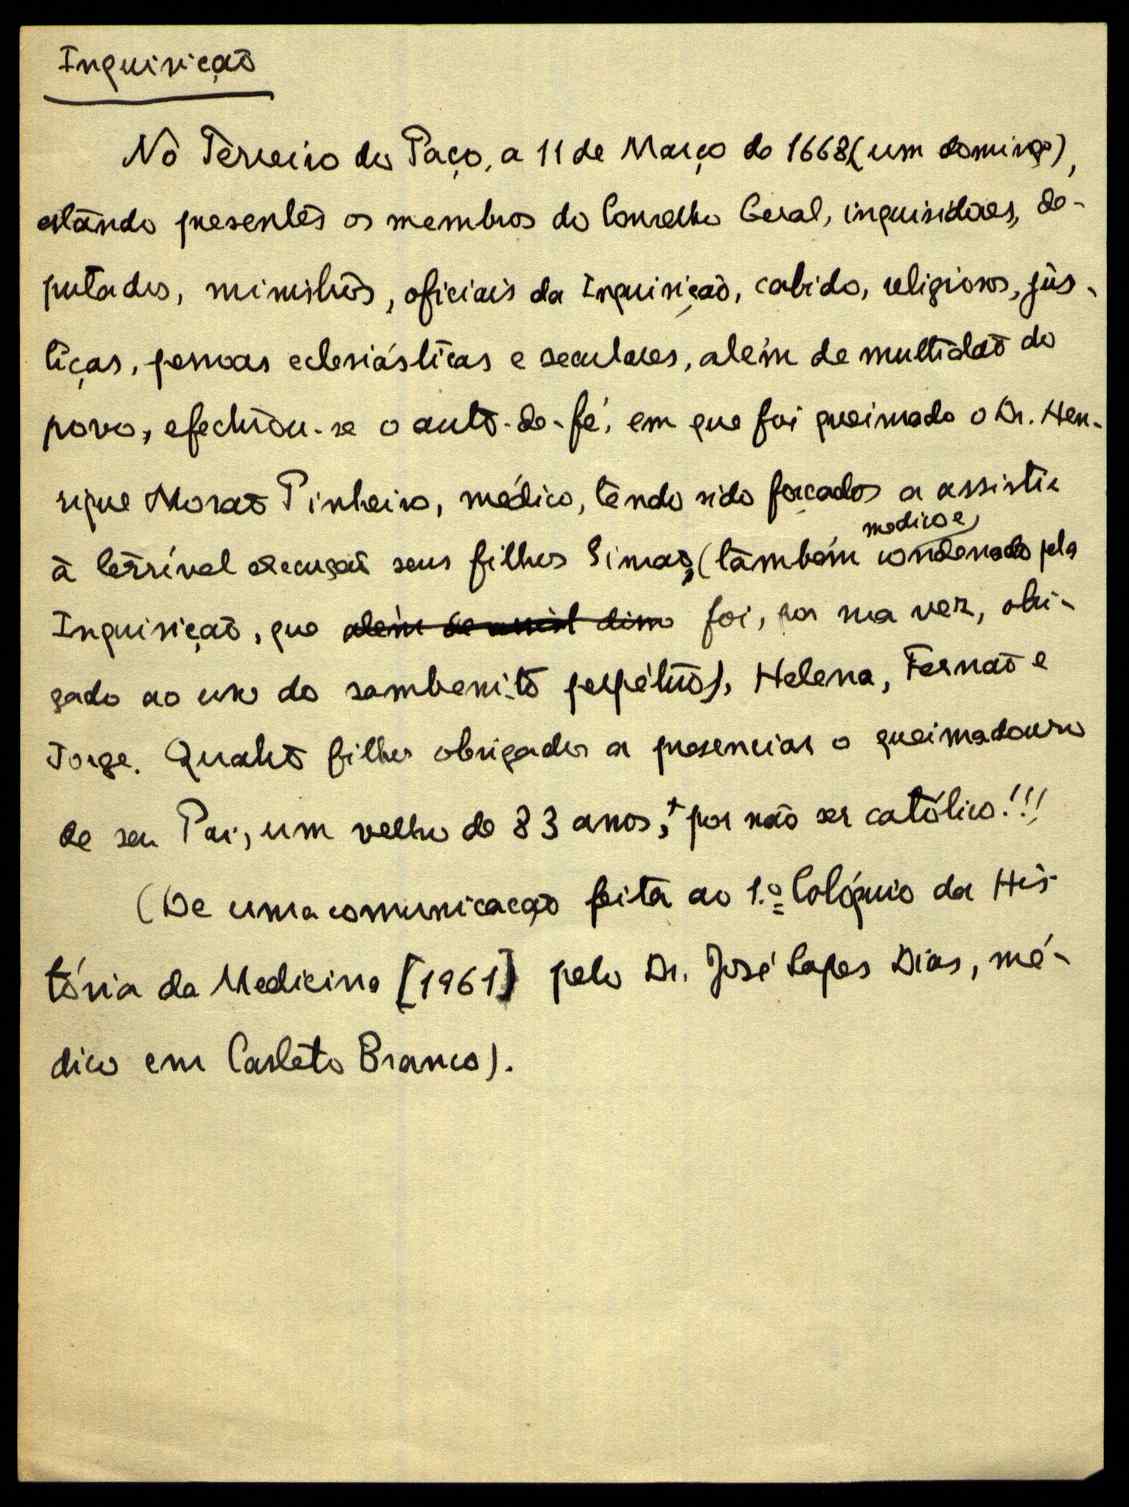 Inquisição
No Terreiro do Paço, a 11 de Março de 1668 (um domingo),
estando presentes os membros do Conselho Geral, inquisidores, de-
putados, ministros, oficiais da Inquisição, cabido, religiosos, jus-
tiças, pessoas eclesiásticas e seculares, além de multidão do
povo, efectuou-se o auto-de-fé, em que foi queimado o Dr. Hen-
rique Morão Pinheiro, médico, tendo sido forçados a assistir
à terrível execução seus filhos Simão, (também médico e condenado pela
Inquisição, que foi, por sua vez, obri-
gado ao uso do sambenito perpétuo), Helena, Fernão e
Jorge. Quatro filhos obrigados a presenciar o queimadouro
de seu Pai, um velho de 83 anos, + por não ser católico!!!
(De uma comunicação feita ao 1.º Colóquio da His-
tória da Medicina [1961] pelo Dr. José Lopes Dias, mé-
dico em Castelo Branco).